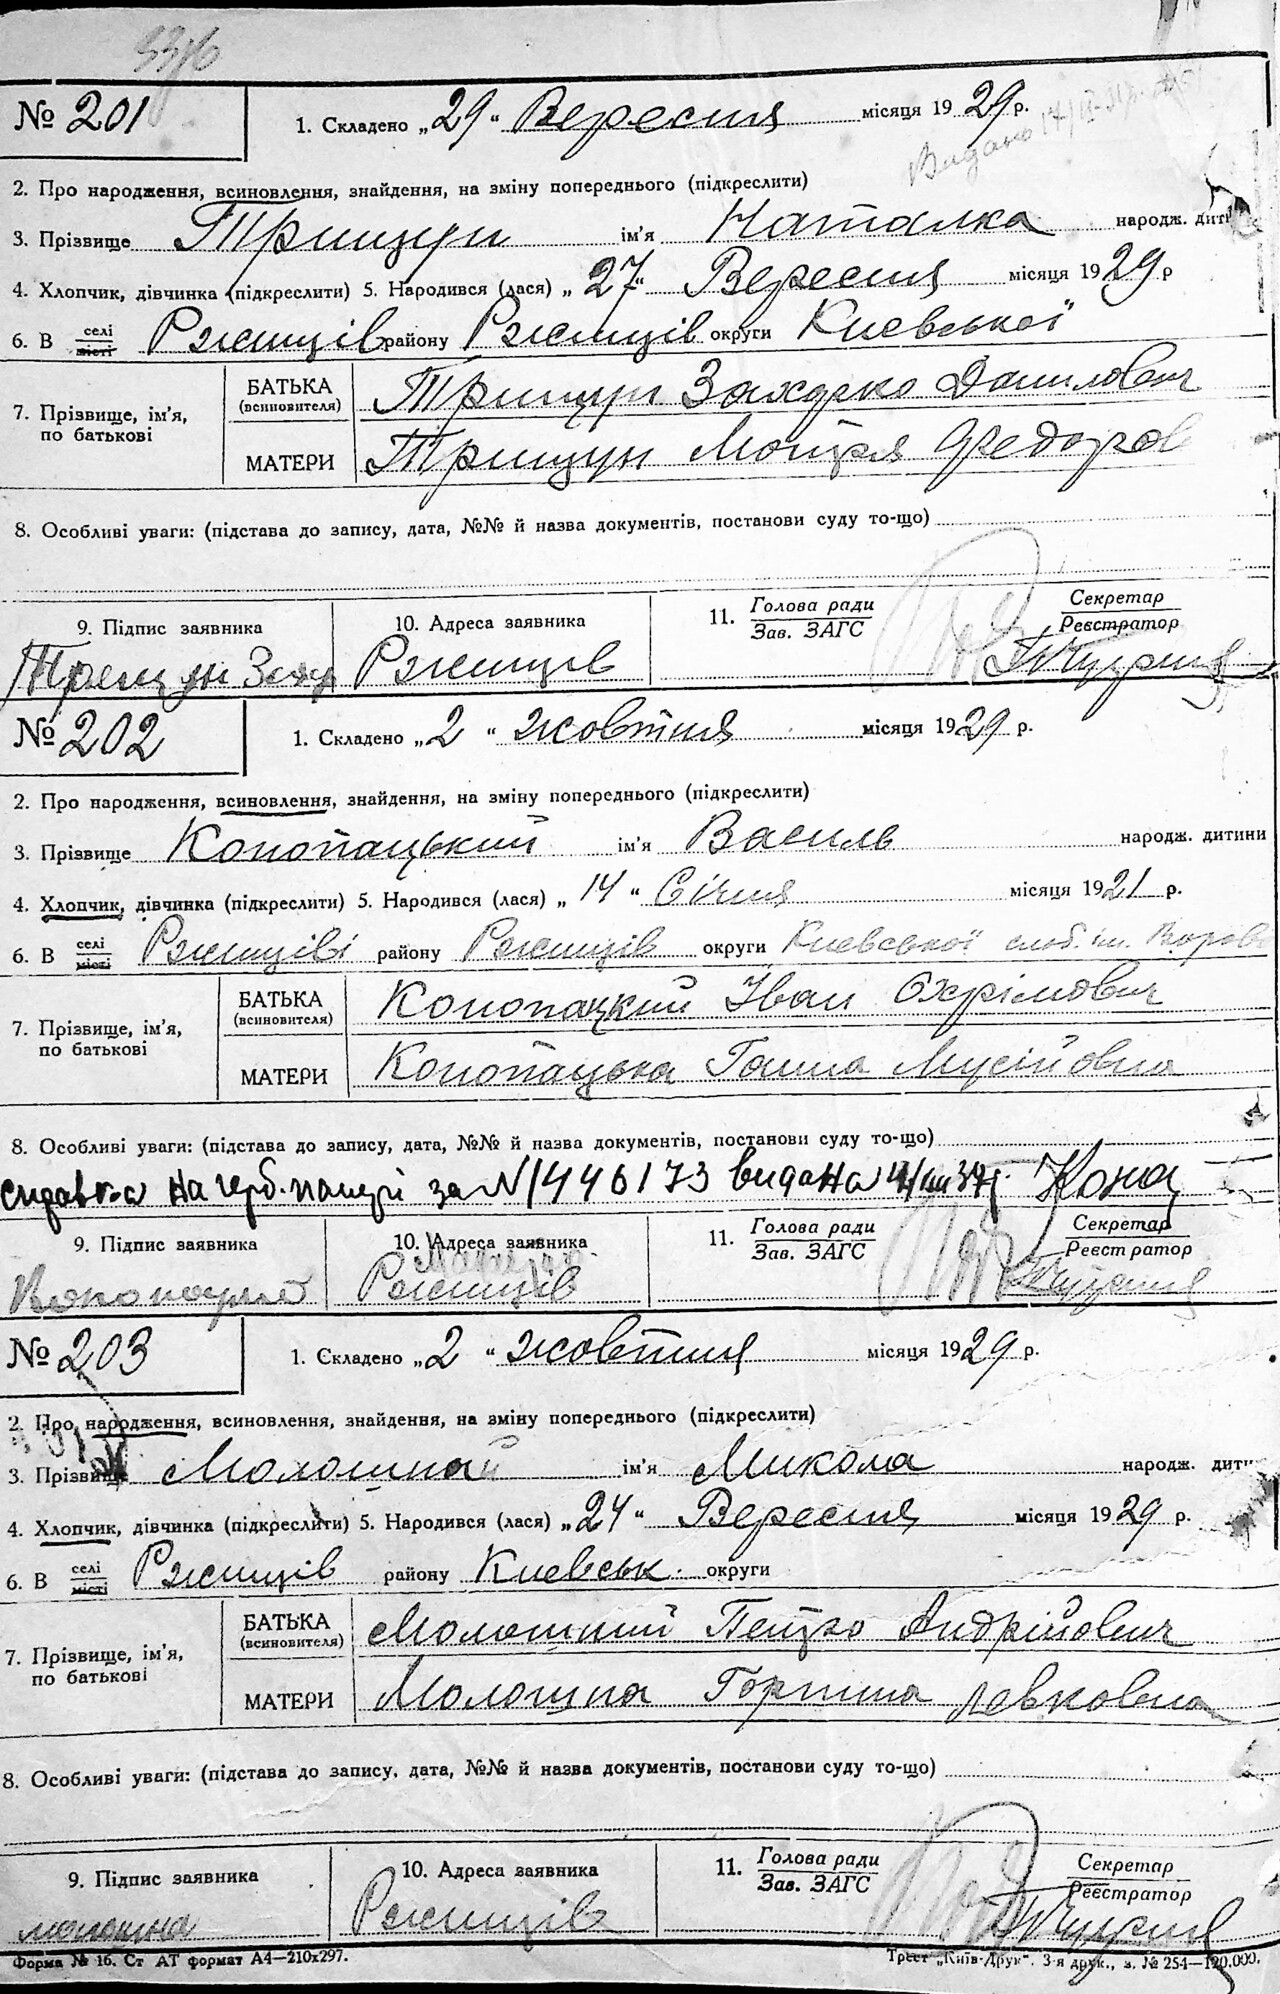 № 201 1. Складено „29" Вересня місяця 1929 р.
Видано
2. Про народження, всиновлення, знайдення, на зміну попереднього (підкреслити)
3. Прізвище Трищун ім'я Наталка народж. дити
4. Хлопчик, дівчинка (підкреслити) 5. Народився (лася) „27" Вересня місяця 1929 р
6. В селі місті Ржищів району Ржищів округи Киевської
7. Прізвище, ім'я, по батькові
БАТЬКА (всиновителя) Трищун Захарко Данилович
МАТЕРИ Трищун Мотря Федоров
8. Особливі уваги: (підстава до запису, дата, №№ й назва документів, постанови суду то-що)
9. Підпис заявника 10. Адреса заявника 11. Голова ради Зав. ЗАГС Секретар Реєстратор
Трищун Захар Ржищів
№ 202 1. Складено „2" жовтня місяця 1929 р.
2. Про народження, всиновлення, знайдення, на зміну попереднього (підкреслити)
3. Прізвище Конопацький ім'я Василь народж. дитини
4. Хлопчик, дівчинка (підкреслити) 5. Народився (лася) „14" Січня місяця 1921 р.
6. В селі місті Ржищіві району Ржищів округи Киевської
7. Прізвище, ім'я, по батькові
БАТЬКА (всиновителя) Конопацкий Іван Охрімович
МАТЕРИ Конопацька Ганна Мусійовна
8. Особливі уваги: (підстава до запису, дата, №№ й назва документів, постанови суду то-що)
справка на герб. папері за N 1446173 видана
9. Підпис заявника 10. Адреса заявника 11. Голова ради Зав. ЗАГС Секретар Реєстратор
Ржищів
№ 203 1. Складено „2" жовтня місяця 1929 р.
2. Про народження, всиновлення, знайдення, на зміну попереднього (підкреслити)
3. Прізвище Молошний ім'я Микола народж. дити
4. Хлопчик, дівчинка (підкреслити) 5. Народився (лася) „24" Вересня місяця 1929 р.
6. В селі місті Ржищів району Киевськ. округи
7. Прізвище, ім'я, по батькові
БАТЬКА (всиновителя) Молошний Петро Андрійович
МАТЕРИ Молошна Горпина Левковна
8. Особливі уваги: (підстава до запису, дата, №№ й назва документів, постанови суду то-що)
9. Підпис заявника 10. Адреса заявника 11. Голова ради Зав. ЗАГС Секретар Реєстратор
молошна Ржищів
Форма № 16. Ст АТ формат А4—210х297. Трест „Київ-Друк". 3-я друк., з. № 254—120.000.